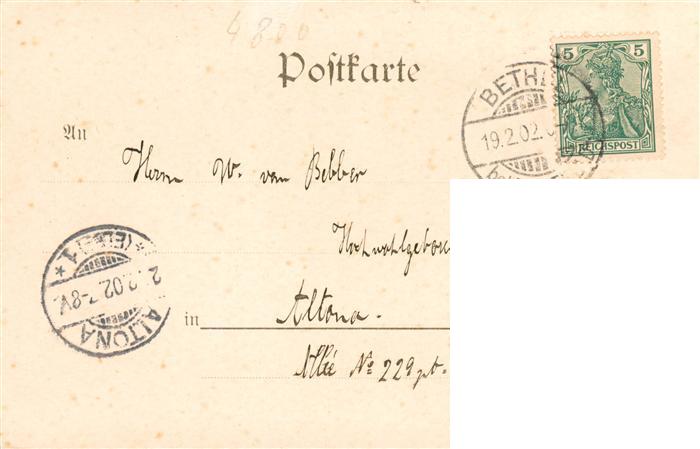 4800
Postkarte
5 5
REICHSPOST
BETHL
19.2.02.
An
Herrn W. van Bebber
Hochwohlgebor
in Altona.
Allée No 229 pt.
ALTONA
(ELBE) 1
2.02.7-8V.